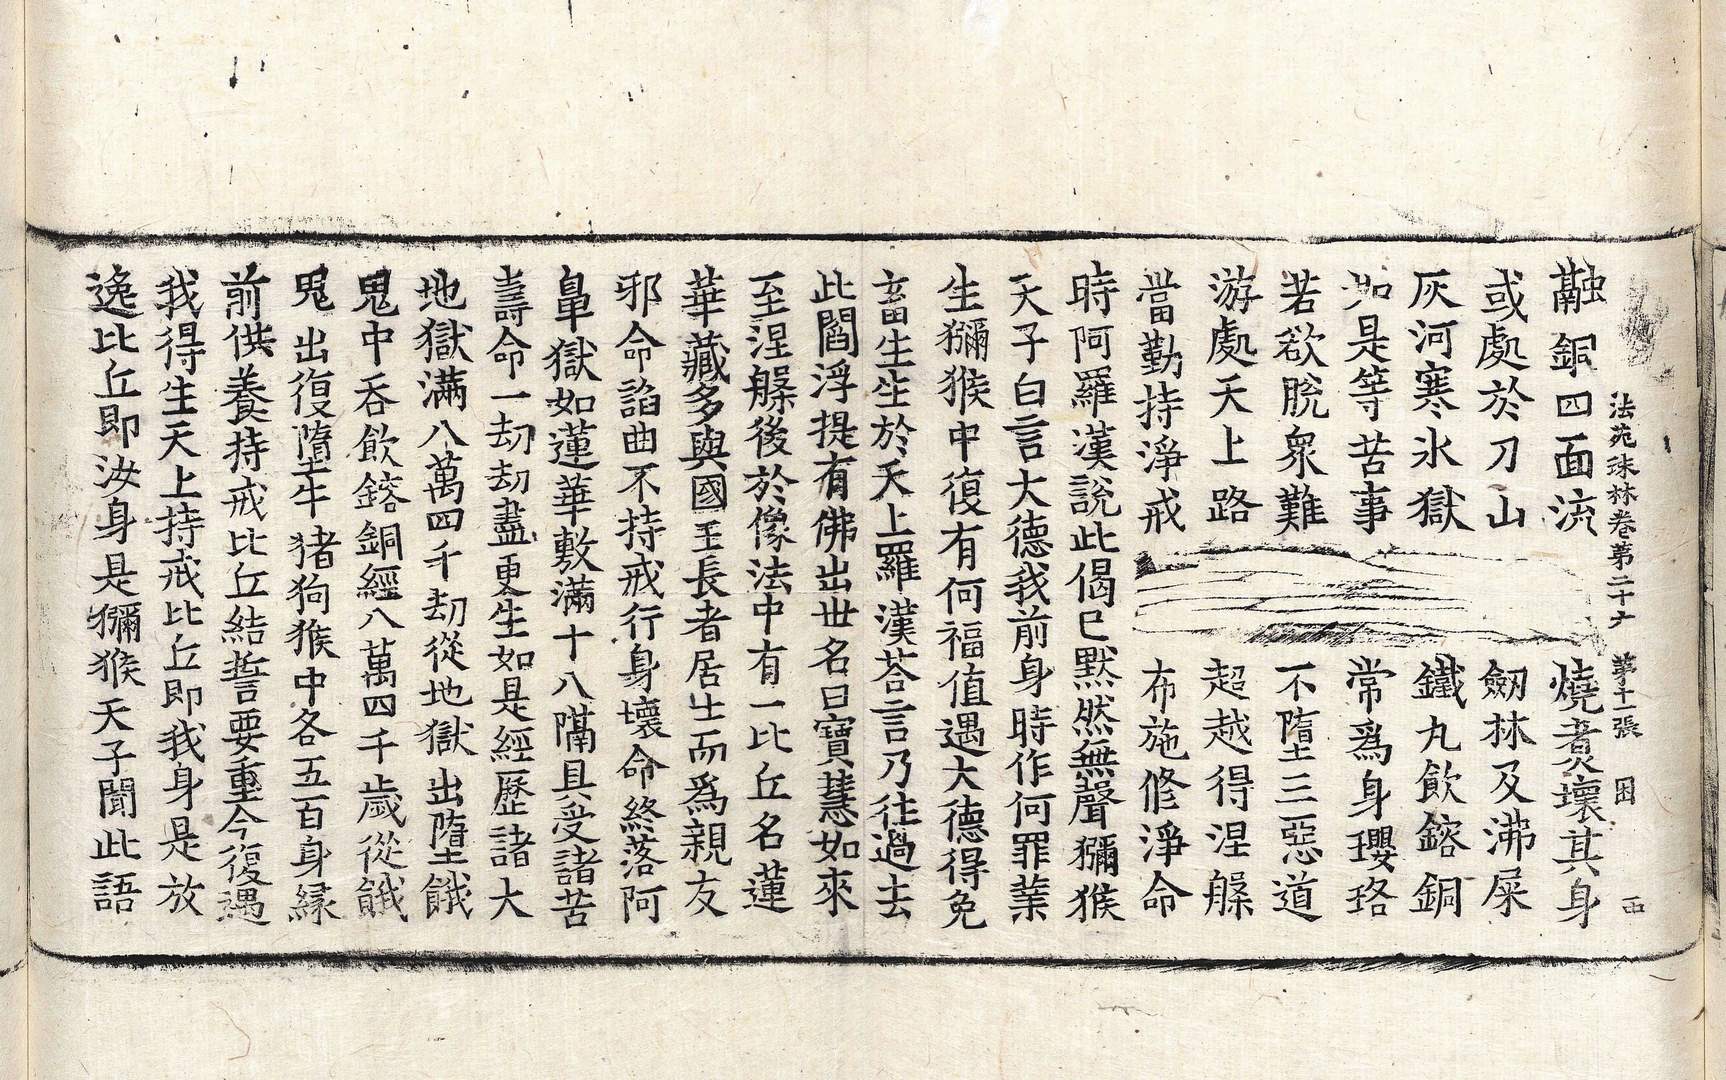 法苑珠林卷第二十六 第十一張 困
融銅四面流 燒煮壞其身
或處於刀山 劒林及沸屎
灰河寒氷獄 鐵丸飲鎔銅
如是等苦事 常爲身瓔珞
若欲脫衆難 不墮三惡道
游處天上路 超越得涅槃
當勤持淨戒 布施修淨命
時阿羅漢說此偈已默然無聲獼猴
天子白言大德我前身時作何罪業
生獼猴中復有何福值遇大德得免
畜生生於天上羅漢荅言乃往過去
此閻浮提有佛出世名曰寶慧如來
至涅槃後於像法中有一比丘名蓮
華藏多與國王長者居士而爲親友
邪命諂曲不持戒行身壞命終落阿
鼻獄如蓮華敷滿十八隔具受諸苦
壽命一劫劫盡更生如是經歷諸大
地獄滿八萬四千劫從地獄出墮餓
鬼中吞飲鎔銅經八萬四千歲從餓
鬼出復墮牛猪狗猴中各五百身縁
前供養持戒比丘結誓要重今復遇
我得生天上持戒比丘即我身是放
逸比丘即汝身是獼猴天子聞此語